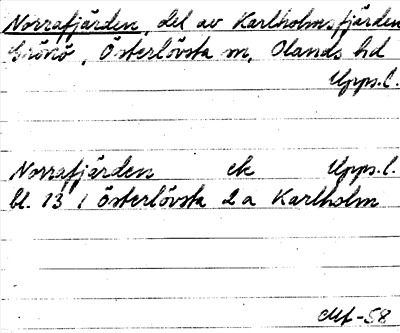 Norrafjärden, del av Karlholmsfjärden
Grönö, Österlövsta sn, Olands hd
Upps.l.
Norrafjärden ek Upps.l.
bl. 13 / Österlövsta 2 a Karlholm
-58